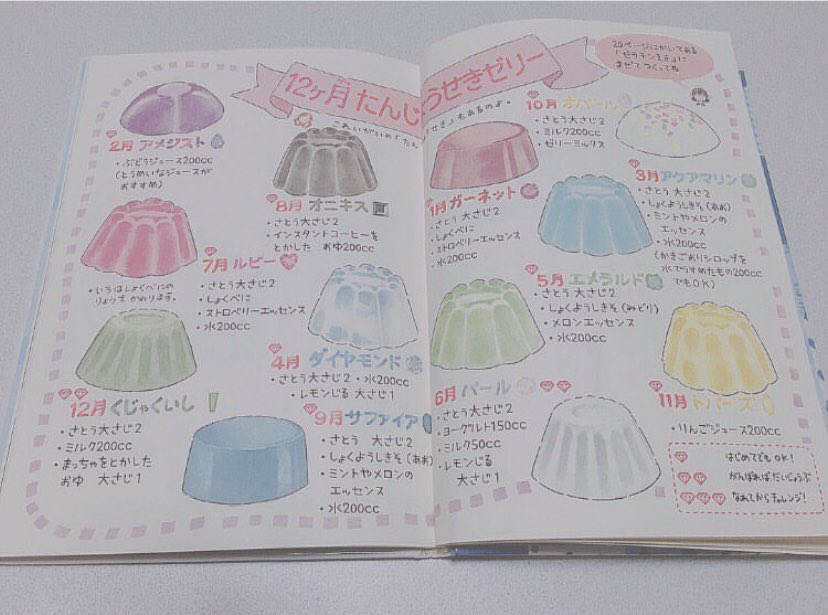 12ヶ月 たんじょうせきゼリー
20ページにかいてある
「ゼラチン」
まぜてつくってね
これいがいの「たん
せき」もあるのよ。
2月 アメジスト
・ぶどうジュース200cc
(とうめいなジュースが
おすすめ)
8月 オニキス
・さとう大さじ2
・インスタントコーヒーを
とかした おゆ200cc
7月 ルビー
・さとう 大さじ2
・しょくべに
・ストロベリーエッセンス
・水200cc
・いろはしょくべにの
りょうで かわります。
4月 ダイヤモンド
・さとう 大さじ2・水200cc
・レモンじる 大さじ1
12月 くじゃくいし
・さとう 大さじ2
・ミルク200cc
・まっちゃをとかした
おゆ 大さじ1
9月 サファイア
・さとう 大さじ2
・しょくようしきそ(あお)
・ミントやメロンの
エッセンス
・水200cc
10月 オパール
・さとう 大さじ2
・ミルク200cc
・ゼリーミックス
1月 ガーネット
・さとう 大さじ2
・しょくべに
・ストロベリーエッセンス
・水200cc
3月 アクアマリン
・さとう 大さじ2
・しょくようしきそ(あお)
・ミントやメロンの
エッセンス
・水200cc
(かきごおりシロップを
水でうすめたもの200cc
でもOK)
5月 エメラルド
・さとう 大さじ2
・しょくようしきそ(みどり)
・メロンエッセンス
・水200cc
6月 パール
・さとう 大さじ2
・ヨーグルト150cc
・ミルク50cc
・レモンじる
大さじ1
11月 トパーズ
・りんごジュース200cc
はじめてでもOK!
がんばればだいじょうぶ
なれてからチャレンジ!